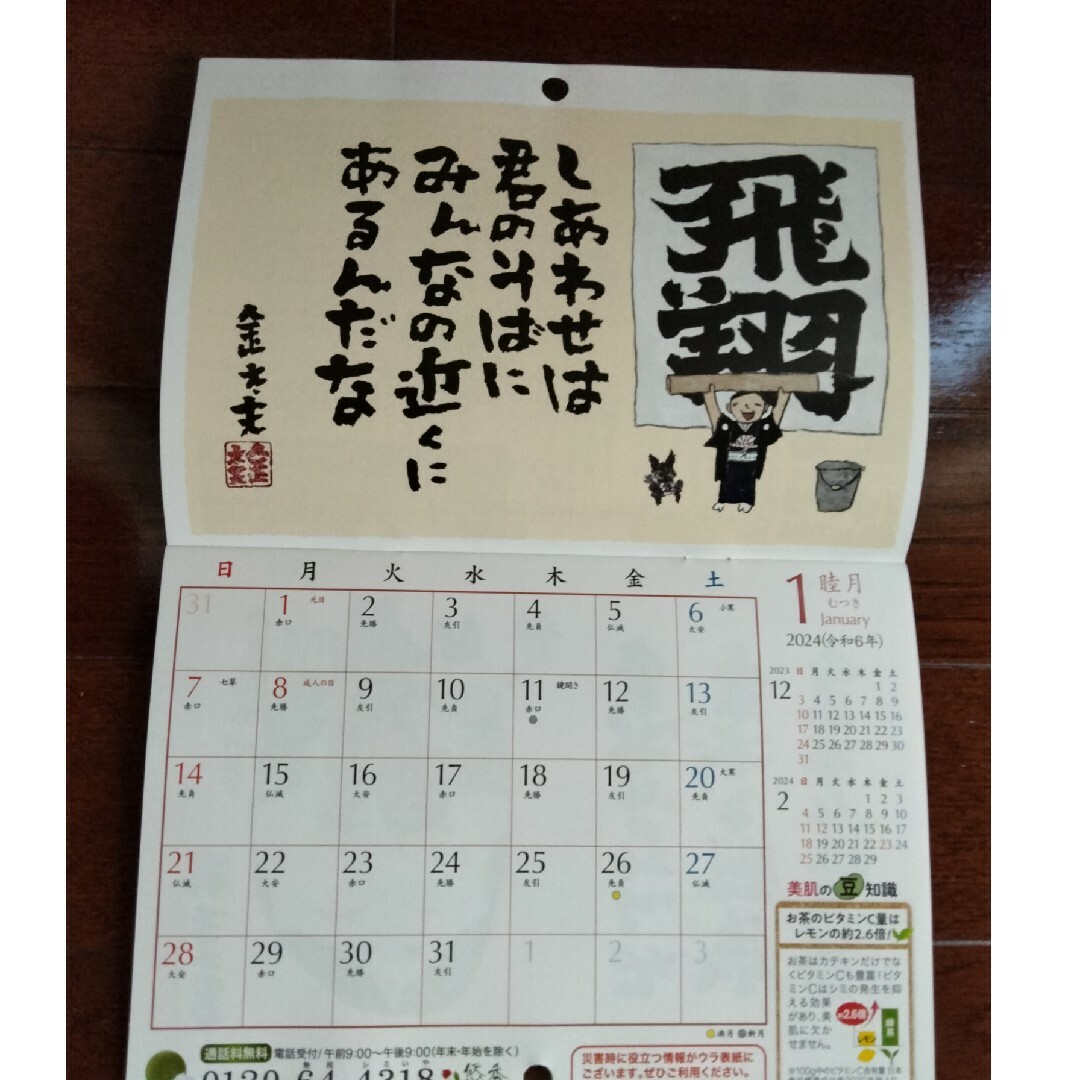 飛翔
しあわせは
君のそばに
みんなの近くに
あるんだな
日 月 火 水 木 金 土
31 1 元日 2 3 4 5 6 小寒
赤口 先勝 友引 先負 仏滅 大安
7 七草 8 成人の日 9 10 11 鏡開き 12 13
赤口 先勝 友引 先負 赤口 先勝 友引
14 15 16 17 18 19 20 大寒
先負 仏滅 大安 赤口 先勝 友引 先負
21 22 23 24 25 26 27
仏滅 大安 赤口 先勝 友引 先負 仏滅
28 29 30 31 1 2 3
大安 赤口 先勝 友引
満月 新月
1 睦月
むつき
January
2024(令和6年)
2023 日 月 火 水 木 金 土
12 1 2
3 4 5 6 7 8 9
10 11 12 13 14 15 16
17 18 19 20 21 22 23
24 25 26 27 28 29 30
31
2024 日 月 火 水 木 金 土
2 1 2 3
4 5 6 7 8 9 10
11 12 13 14 15 16 17
18 19 20 21 22 23 24
25 26 27 28 29
美肌の豆知識
お茶のビタミンC量は
レモンの約2.6倍!
お茶はカテキンだけでな
くビタミンCも豊富!ビタ
ミンCはシミの発生を抑
える効果
があり、美
肌に欠か
せません。
約2.6倍
緑茶
レモン
※100g中のビタミンC含有量 日本
通話料無料 電話受付/午前9:00〜午後9:00(年末・年始を除く)
0120-64-4318 悠香
災害時に役立つ情報がウラ表紙に
ございます。ぜひご利用ください。